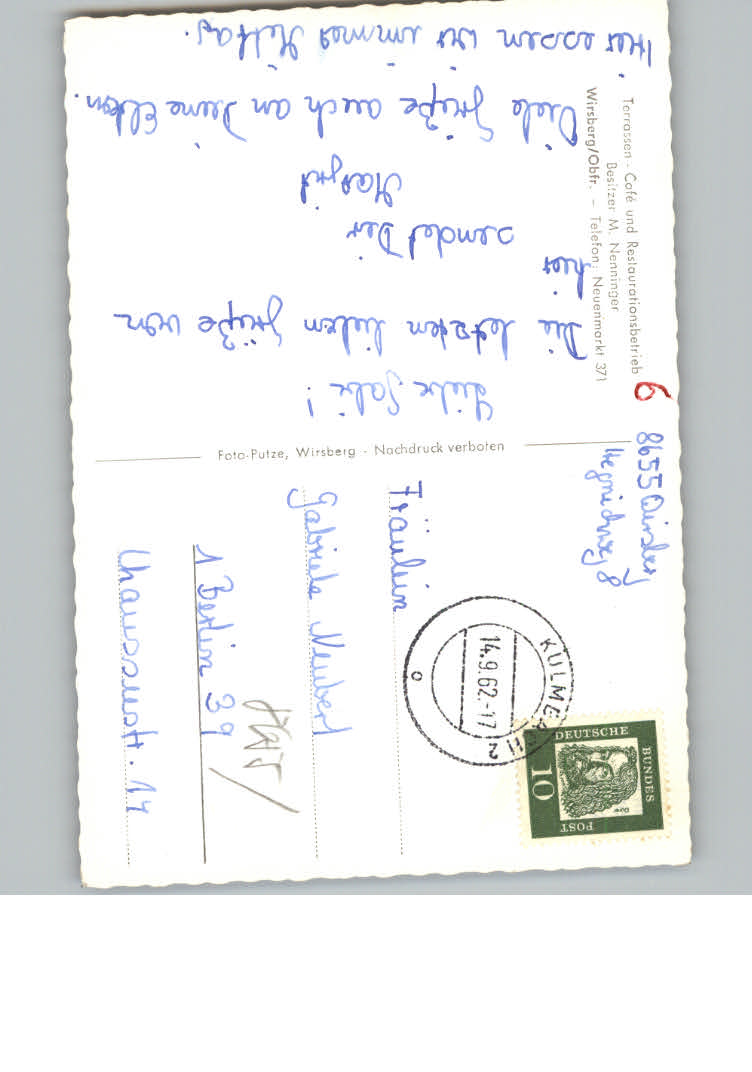 Terrassen - Café und Restaurationsbetrieb
Besitzer M. Nenninger
Wirsberg/Obfr. – Telefon: Neuenmarkt 371
6
Liebe Gabi!
Die letzten lieben Grüße von
hier
sendet Dir
Margrit
Viele Grüße auch an Deine Eltern.
Hier essen wir immer Mittag.
Foto-Putze, Wirsberg - Nachdruck verboten
8655
8
KULMBACH 2
14.9.62.-17
o
DEUTSCHE
BUNDES
POST
10
Dürer
Fräulein
Gabriele Neubert
1 Berlin 39
Chausseestr. 14